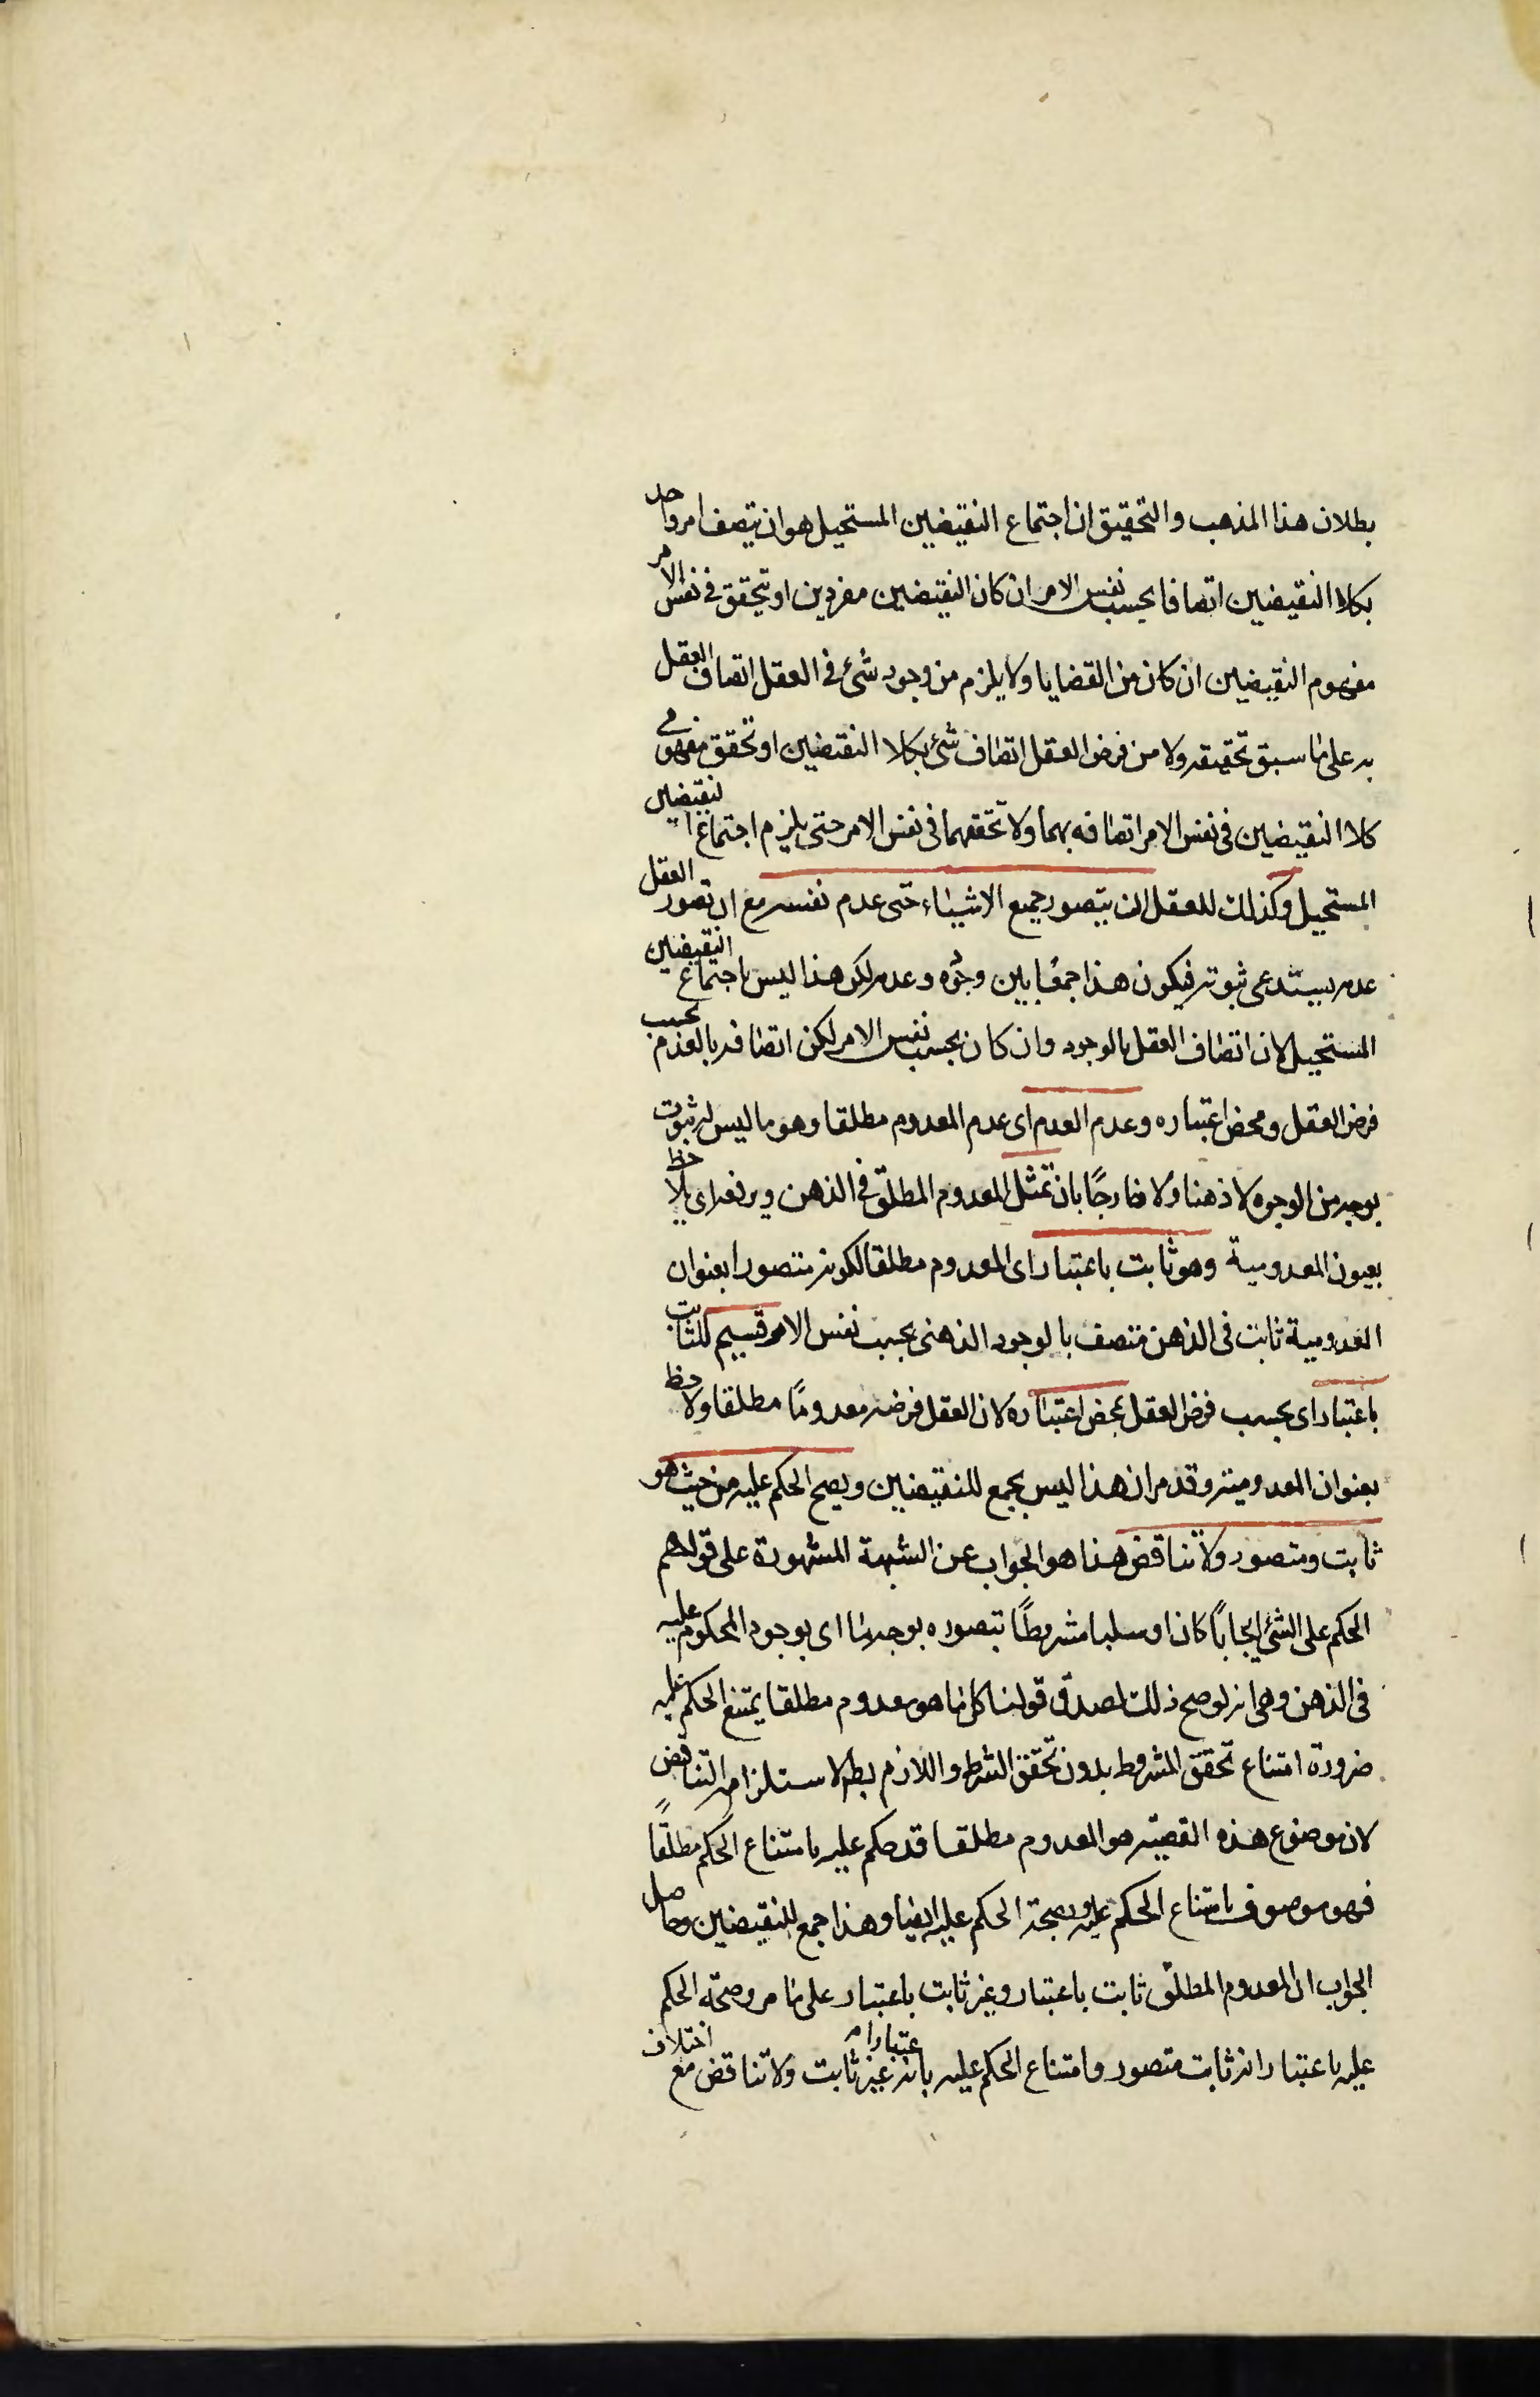 بطلان هذا المذهب والتحقيق ان اجتماع النقيضين المستحيل هو ان يتصف امر واحد
بكلا النقيضين اتصافا بحسب نفس الامر ان كان النقيضين مفردين او يتحقق فى نفس الامر
مفهوم النقيضين ان كان من القضايا ولا يلزم من وجود شئ فى العقل اتصاف العقل
به على ما سبق تحقيقه ولا من فرض العقل اتصاف شئ بكلا النقيضين او تحقق مفهومى
كلا النقيضين فى نفس الامر اتصافه بهما ولا تحققهما فى نفس الامر حتى يلزم اجتماع النقيضين
المستحيل وكذلك للعقل ان يتصور جميع الاشياء حتى عدم نفسه مع ان تصور العقل
عدمه يستدعى ثبوته فيكون هذا جمعا بين وجوده وعدمه لكن هذا ليس باجتماع النقيضين
المستحيل لان اتصاف العقل بالوجود وان كان بحسب نفس الامر لكن اتصافه بالعدم بحسب
فرض العقل ومحض اعتباره وعدم العدم اى عدم المعدوم مطلقا وهو ما ليس له ثبوت
بوجه من الوجوه لا ذهنا ولا خارجًا بان تمثل المعدوم المطلق فى الذهن ويرفعه اى يلاحظ
بعيون المعدومية وهو ثابت باعتبار اى المعدوم مطلقا لكونه متصورا بعنوان
المعدومية ثابت فى الذهن متصف بالوجود الذهنى بحسب نفس الامر قسيم للثابت
باعتبار اى بحسب فرض العقل بمحض اعتباره لان العقل فرضه معدومًا مطلقا ولاحظ
بعنوان المعدومية وقد مر ان هذا ليس بجمع للنقيضين ويصح الحكم عليه من حيث هو
ثابت ومتصور ولا تناقض هذا هو الجواب عن الشبهة المشهورة على قولهم
الحكم على الشئ ايجابًا كان او سلبا مشروطًا بتصوره بوجه ما اى بوجود المحكوم عليه
فى الذهن وهى انه لو صح ذلك لصدق قولنا كل ما هو معدوم مطلقا يمتنع الحكم عليه
ضرورة امتناع تحقق المشروط بدون تحقق الشرط واللازم بط لاستلزامه التناقض
لان موضوع هذه القضية هو المعدوم مطلقا قد حكم عليه بامتناع الحكم مطلقًا
فهو موصوف بامتناع الحكم عليه وبصحة الحكم عليه ايضا وهذا جمع للنقيضين وحاصل
الجواب ان المعدوم المطلق ثابت باعتبار وغير ثابت باعتبار على ما مر وصحة الحكم
عليه باعتبار انه ثابت متصور وامتناع الحكم عليه باعتبار انه غير ثابت ولا تناقض مع اختلاف